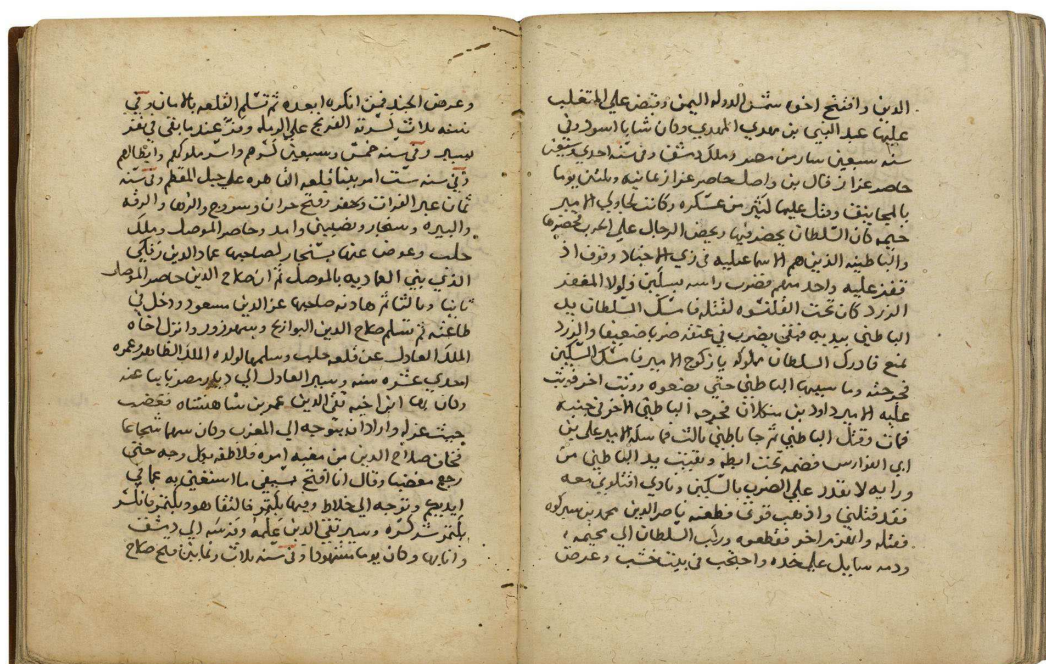 الدين وافتتح اخوه شمس الدوله اليمن وقبض علي المتغلب
عليها عبد النبي بن مهدي المهدي وكان شابا اسود وفي
سنه سبعين سار من مصر وملك دمشق وفي سنه احدي وسبعين
حاصر عزاز قال بن واصل حاصر عزاز ثمانيه وثلثين يوما
بالمجانيق وقتل عليها كثير من عسكره وكانت لجاولي الامير
خيمه كان السلطان يحضر فيها ويحض الرجال علي الحرب فحضرها
والباطنيه الذين هم الاسماعيليه في زي الاجناد وقوف اذ
قفز عليه واحد منهم فضرب راسه بسكين فلولا المغفر
الزرد كان تحت القلنسوه لقتله فامسك السلطان يد
الباطني بيديه فبقي يضرب في عنقه ضربا ضعيفا والزرد
تمنع فادرك السلطان مملوكه يازكوج الامير فامسك السكين
فجرحته وما سيبها الباطني حتي بضعوه ووثب اخر فوثب
عليه الامير داود بن منكلان فجرحه الباطني الاخر في جنبه
فمات وقتل الباطني ثم جا باطني ثالث فامسكه الامير علي بن
ابي الفوارس فضمه تحت ابطه وبقيت يد الباطني من
ورايه لا تقدر علي الضرب بالسكين ونادي اقتلوني معه
فقد قتلني واذهب قوتي فطعنه ناصر الدين محمد بن شيركوه
فقتله وانهزم اخر فقطعوه وركب السلطان الي مخيمه
ودمه سايل علي خده واحتجب في بيت خشب وعرض
وعرض الجند فمن انكره ابعده ثم تسلم القلعه بالامان وفي
سنه ثلاث كسرته الفرنج علي الرمله وفر عند ما بقي في نفر
يسير وفي سنه خمس وسبعين كسرهم واسر ملوكهم وابطالهم
وفي سنه ست امر ببنا قلعه القاهره علي جبل المقطم وفي سنه
ثمان عبر الفرات وفتح حران وسروج والرها والرقه
والبيره وسنجار ونصيبين وامد وحاصر الموصل وملك
حلب وعوض عنها بسنجار لصاحبها عماد الدين زنكي
الذي بني العماديه بالموصل ثم ان صلاح الدين حاصر الموصل
ثانيا وثالثا ثم هادنه صاحبها عز الدين مسعود ودخل في
طاعته ثم تسلم صلاح الدين البوازيج وشهرزور وانزل اخاه
الملك العادل عن قلعه حلب وسلمها لولده الملك الظاهر وعمره
احدي عشره سنه وسير العادل الي ديار مصر نايبا عنه
وكان بها ابن اخيه تقي الدين عمر بن شاهنشاه فغضب
حيث عزله واراد ان يتوجه الي المغرب وكان شهما شجاعا
فخاف صلاح الدين من مغبه امره فلاطفه بكل وجه حتي
رجع مغضبا وقال انا افتح بسيفي ما استغني به عما في
ايديهم وتوجه الي خلاط وفيها بكتمر فالتقا هو وبكتمر فانكسر
بكتمر شر كسره وسير تقي الدين علمه وفرسه الي دمشق
وانا بها وكان يوما مشهودا وفي سنه ثلاث وثمانين فتح صلاح